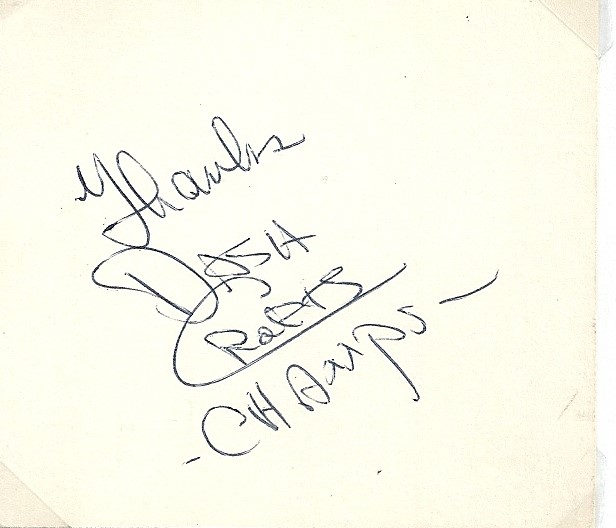 Thanks
DASH
CRoFtS
- CHAmps -